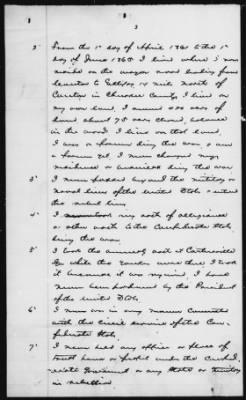 3
2' From the 1st day of April 1861 to the 1st
day of June 1865 I lived where I now
reside on the wagon road leading from
Canton to Ellijay 12 mile north of
Canton in Cherokee County I lived on
my own land, I owned 400 acres of
land about 75 acres cleared, balance
in the wood. I lived on that land.
I was a farmer during the war & am
a farmer yet. I never changed my
residence or business during the war
3' I never passed beyond the military or
naval lines of the United States & enter
the rebel lines.
4' I never took any oath of allegiance
or other oath to the Confederate States
during the war.
5' I took the amnesty oath at Cartersville
Ga while the was there I took
it because it was required, I have
never been pardoned by the President
of the United States.
6' I never was in any manner connected
with the civil service of the Con-
federate States.
7' I never held any office or place of
trust honor or profit under the Confed-
erate Government or any State or territory
in rebellion